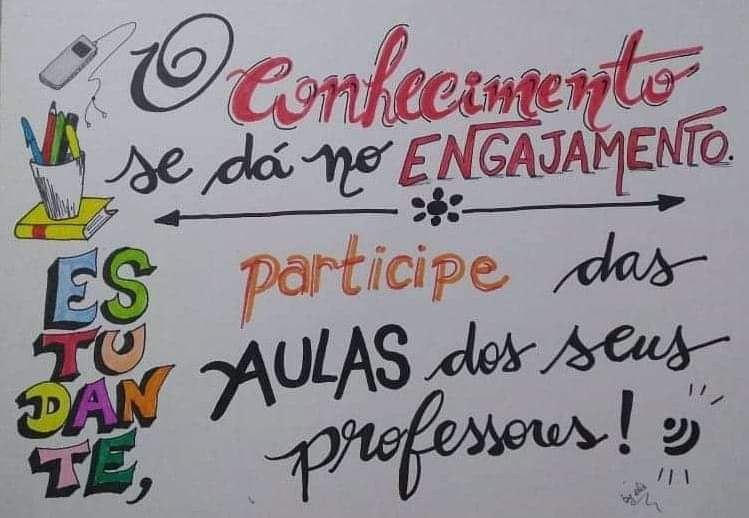 O conhecimento
se dá no ENGAJAMENTO.
ES
TU
DAN
TE,
participe das
AULAS dos seus
professores!